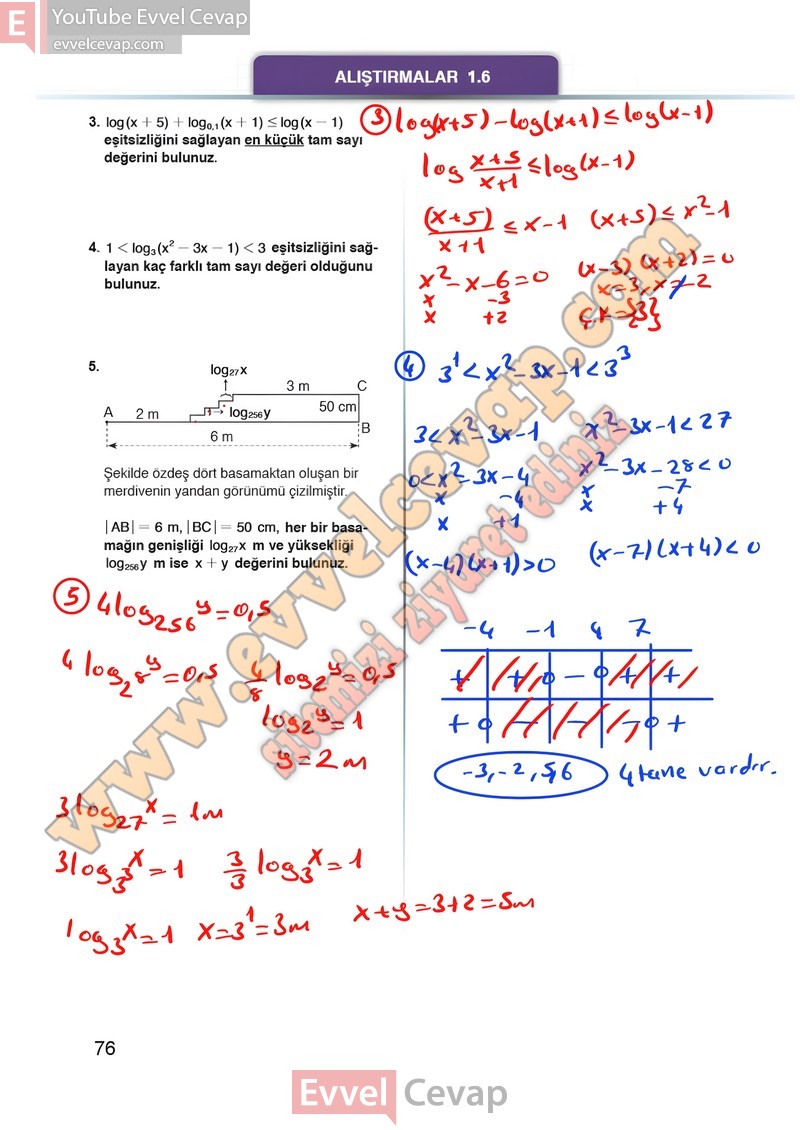 E YouTube Evvel Cevap
evvelcevap.com
ALIŞTIRMALAR 1.6
3. log(x + 5) + log₀,₁(x + 1) ≤ log(x − 1)
eşitsizliğini sağlayan en küçük tam sayı
değerini bulunuz.
4. 1 < log₃(x² − 3x − 1) < 3 eşitsizliğini sağ-
layan kaç farklı tam sayı değeri olduğunu
bulunuz.
5.
log₂₇x
3 m C
A 2 m log₂₅₆y 50 cm
B
6 m
Şekilde özdeş dört basamaktan oluşan bir
merdivenin yandan görünümü çizilmiştir.
|AB| = 6 m, |BC| = 50 cm, her bir basa-
mağın genişliği log₂₇x m ve yüksekliği
log₂₅₆y m ise x + y değerini bulunuz.
3 log(x+5) − log(x+1) ≤ log(x−1)
log x+5/x+1 ≤ log(x−1)
(x+5)/x+1 ≤ x−1 (x+5) ≤ x²−1
x²−x−6=0 (x−3)(x+2)=0
x −3 x=3, x=−2
x +2 Ç.K={3}
4 3¹ < x²−3x−1 < 3³
3 < x²−3x−1 x²−3x−1 < 27
0 < x²−3x−4 x²−3x−28 < 0
x −4 x −7
x +1 x +4
(x−4)(x+1) > 0 (x−7)(x+4) < 0
−4 −1 4 7
+ + 0 − 0 + +
+ 0 − − − 0 +
−3, −2, 5, 6 4 tane vardır.
5 4log₂₅₆y = 0,5
4log₂8y = 0,5 4/8 log₂y = 0,5
log₂y = 1
y = 2m
3log₂₇x = 1m
3log₃3x = 1 3/3 log₃x = 1
log₃x = 1 x = 3¹ = 3m x+y = 3+2 = 5m
www.evvelcevap.com
sitemizi ziyaret ediniz
76
Evvel Cevap